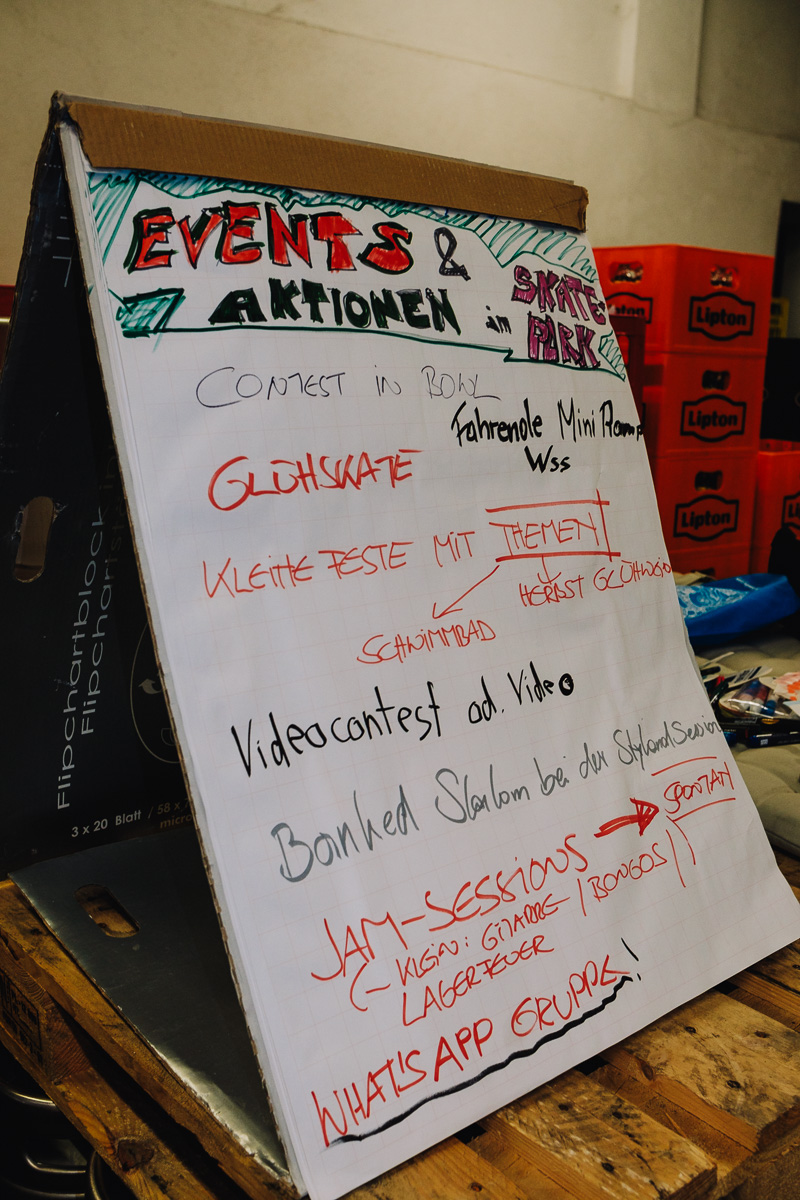 EVENTS &
AKTIONEN im SKATE-
PARK
CONTEST in BOWL
Fahrende Mini Ramp
Wss
GLÜHSKATE
KLEINE FESTE MIT THEMEN
HERBST GLÜHWEIN
SCHWIMMBAD
Videocontest od. Video
Banked Slalom bei der Styland Session
SPONTAN
JAM-SESSIONS
(- KLEIN: GITARRE / BONGOS / )
LAGERFEUER
WHAT'S APP GRUPPE!
Flipchartblock
Flipchart
3 x 20 Blatt / 58 x
micro
Lipton
Lipton
Lipton